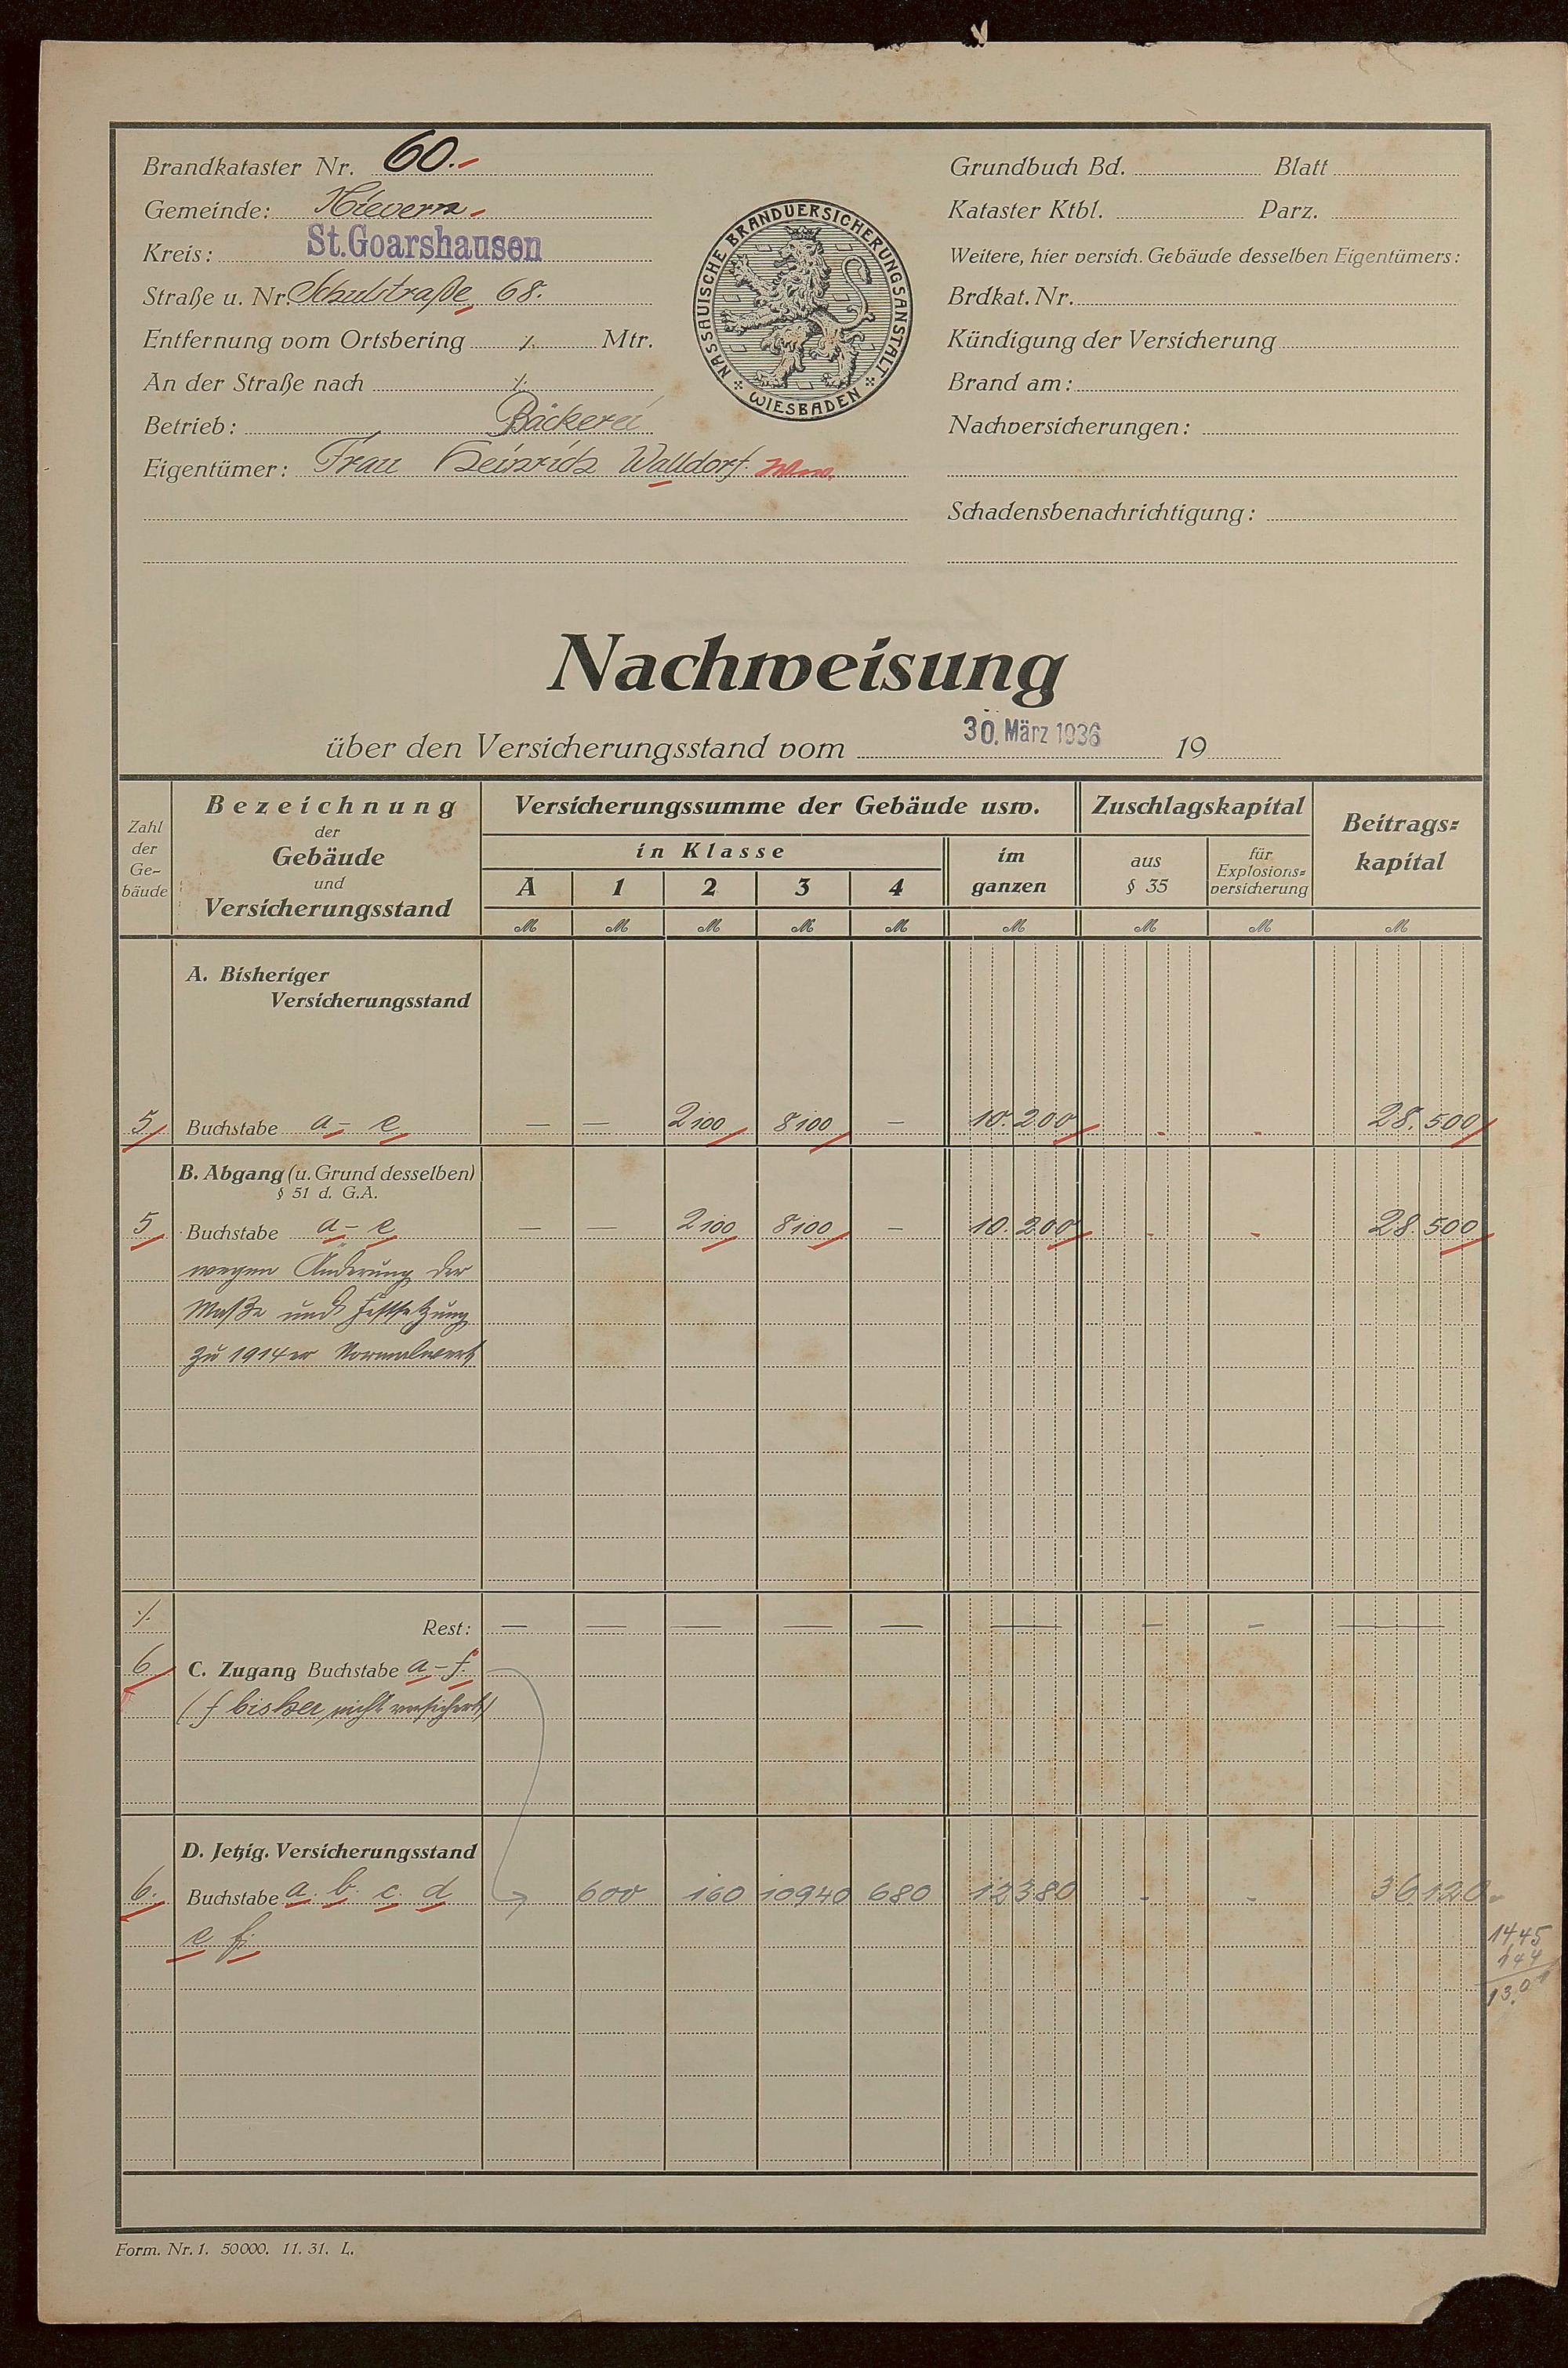 Brandkataster Nr. 60.-
Gemeinde: Nievern
Kreis: St.Goarshausen
Straße u. Nr. Schulstraße 68.
Entfernung vom Ortsbering ·/. Mtr.
An der Straße nach ·/.
Betrieb: Bäckerei
Eigentümer: Frau Heinrich Walldorf. Wwe.
NASSAUISCHE BRANDVERSICHERUNGSANSTALT
WIESBADEN
Grundbuch Bd. Blatt
Kataster Ktbl. Parz.
Weitere, hier versich. Gebäude desselben Eigentümers:
Brdkat. Nr.
Kündigung der Versicherung
Brand am:
Nachversicherungen:
Schadensbenachrichtigung:
Nachweisung
über den Versicherungsstand vom 30. März 1936 19
Zahl der Ge-bäude
Bezeichnung der Gebäude und Versicherungsstand
Versicherungssumme der Gebäude usw.
Zuschlagskapital
Beitrags=kapital
in Klasse
im ganzen
aus § 35
für Explosions=versicherung
A 1 2 3 4
M M M M M M M M M
A. Bisheriger
Versicherungsstand
5 Buchstabe a - e — — 2100 8100 — 10.200 - - 28.500
B. Abgang (u. Grund desselben)
§ 51 d. G.A.
5 Buchstabe a - e — — 2100 8100 — 10.200 - - 28.500
wegen Änderung der
Maße und Festsetzung
zu 1914er Normalwert
·/. Rest: — — — — — — — — —
6 C. Zugang Buchstabe a - f.
(f bisher nicht versichert)
D. Jetzig. Versicherungsstand
6. Buchstabe a. b. c. d 600 160 10940 680 12380 - - 36120.-
e f.
14,45
144
13,01
Form. Nr. 1. 50000. 11. 31. L.